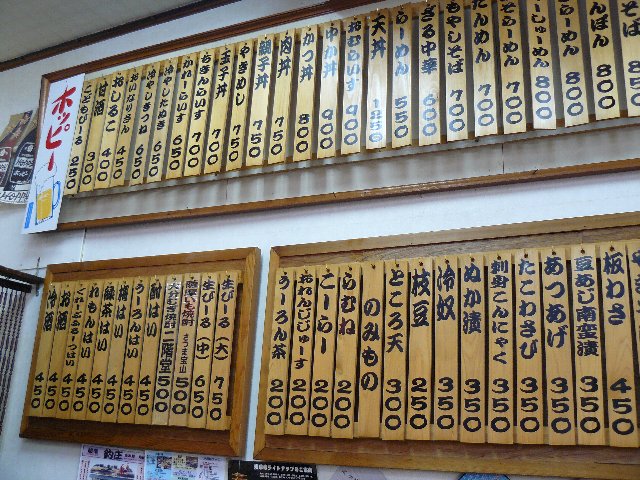 そば
んぽん 800
らーめん 800
しゅーめん 800
そらーめん 700
たんめん 700
もやしそば 750
ざる中華 600
らーめん 550
天丼 1250
おむらいす 750
ゆか丼 750
かつ丼 800
肉丼 750
親子丼 750
やきめし 750
玉子丼 700
ちきんらいす 700
かれーらいす 700
冷やしたぬき 650
冷やしきつね 650
おいなりさん 450
おしるこ 450
甘酒 300
こどもびーる 250
ホッピー
生びーる(大) 750
生びーる(中) 650
薩摩いも焼酎 さつま宝山 500
大分むぎ焼酎 二階堂 500
酎はい 500
うーろんはい 450
梅はい 450
緑茶はい 450
れもんはい 450
ぐれーぷふるーつはい 450
お酒 450
冷酒 450
板わさ 350
豆あじ南蛮漬 350
あつあげ 350
たこわさび 350
刺身こんにゃく 350
ぬか漬 350
冷奴 350
枝豆 250
ところ天 350
のみもの
らむね 200
こーらー 200
おれんじじゅーす 200
うーろん茶 200
釣庄